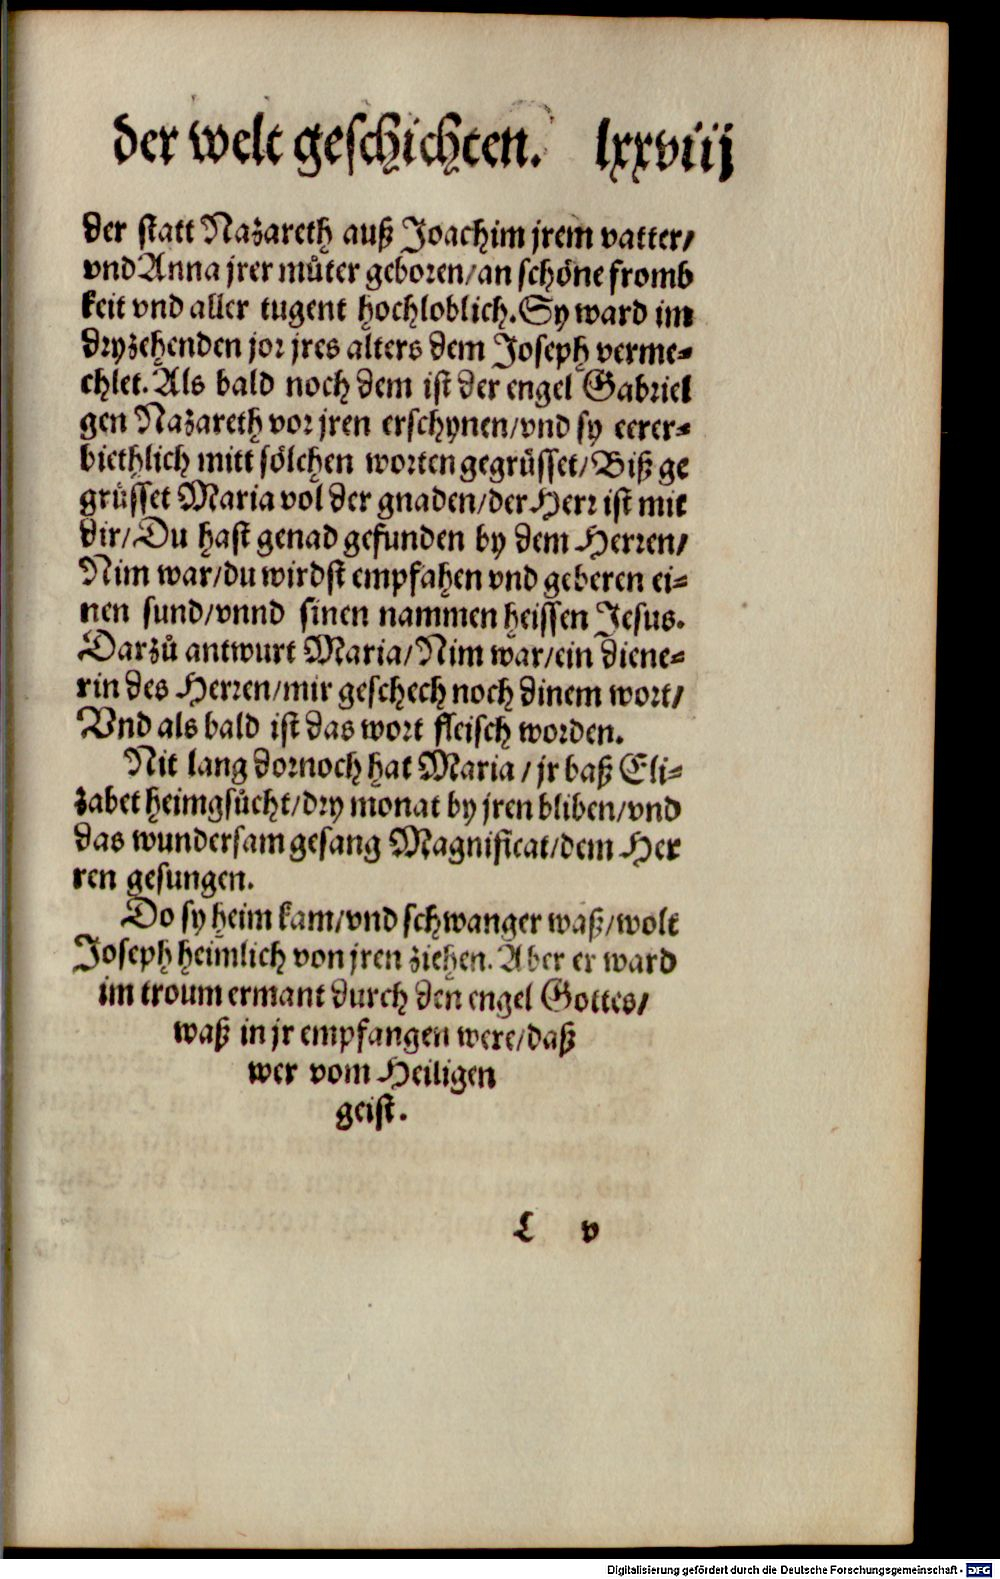 der welt geschichten. lxxviij
der statt Nazareth auß Joachim jrem vatter/
vnd Anna jrer můter geboren/an schöne fromb
keit vnd aller tugent hochloblich. Sy ward im
dryzehenden jor jres alters dem Joseph verme⸗
chlet. Als bald noch dem ist der engel Gabriel
gen Nazareth vor jren erschynen/vnd sy eerer⸗
biethlich mitt sölchen worten gegrüsset/Biß ge
grüsset Maria vol der gnaden/der Herr ist mit
dir/Du hast genad gefunden by dem Herren/
Nim war/du wirdst empfahen vnd geberen ei⸗
nen sund/vnnd sinen nammen heissen Jesus.
Darzů antwurt Maria/Nim war/ein diene⸗
rin des Herren/mir geschech noch dinem wort/
Vnd als bald ist das wort fleisch worden.
Nit lang dornoch hat Maria/jr baß Eli⸗
zabet heimgsůcht/dry monat by jren bliben/vnd
das wundersam gesang Magnificat/dem Her
ren gesungen.
Do sy heim kam/vnd schwanger waß/wolt
Joseph heimlich von jren ziehen. Aber er ward
im troum ermant durch den engel Gottes/
waß in jr empfangen were/daß
wer vom Heiligen
geist.
L v
Digitalisierung gefördert durch die Deutsche Forschungsgemeinschaft - DFG